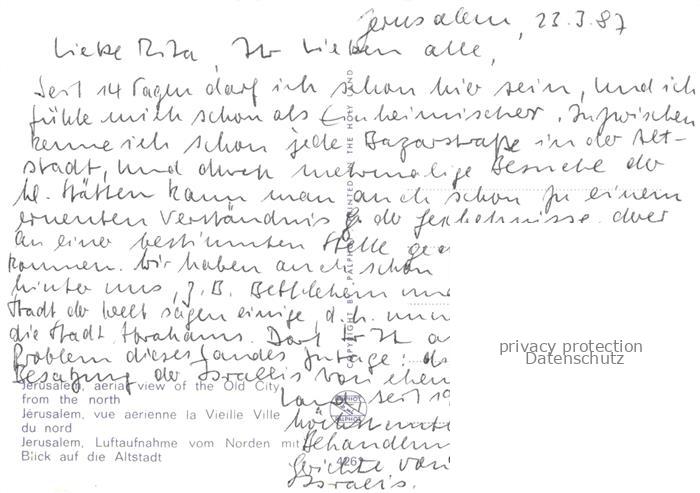 Jerusalem, 23.3.87
Liebe Rita, Ihr Lieben alle,
Seit 14 Tagen darf ich schon hier sein, und ich
fühle mich schon als Einheimischer. Inzwischen
kenne ich schon jede Bazarstraße in der Alt-
stadt, und durch mehrmalige Besuche der
hl. Stätten kann man auch schon zu einem
erneuten Verständnis der Geschehnisse
an einer bestimmten Stelle
kommen. Wir haben auch schon
hinter uns, z.B. Bethlehem
Stadt der Welt sagen einige, d.h.
die Stadt Abrahams. Dort
Problem dieses Landes zutage:
Besatzung der Israelis von
Land seit 19
Behandlun
Gerichte von
Israelis.
COPYRIGHT BY PALPHOT PRINTED IN THE HOLY LAND
privacy protection
Datenschutz
Jerusalem, aerial view of the Old City
from the north
Jérusalem, vue aérienne la Vieille Ville
du nord
Jerusalem, Luftaufnahme vom Norden mit
Blick auf die Altstadt
PALPHOT